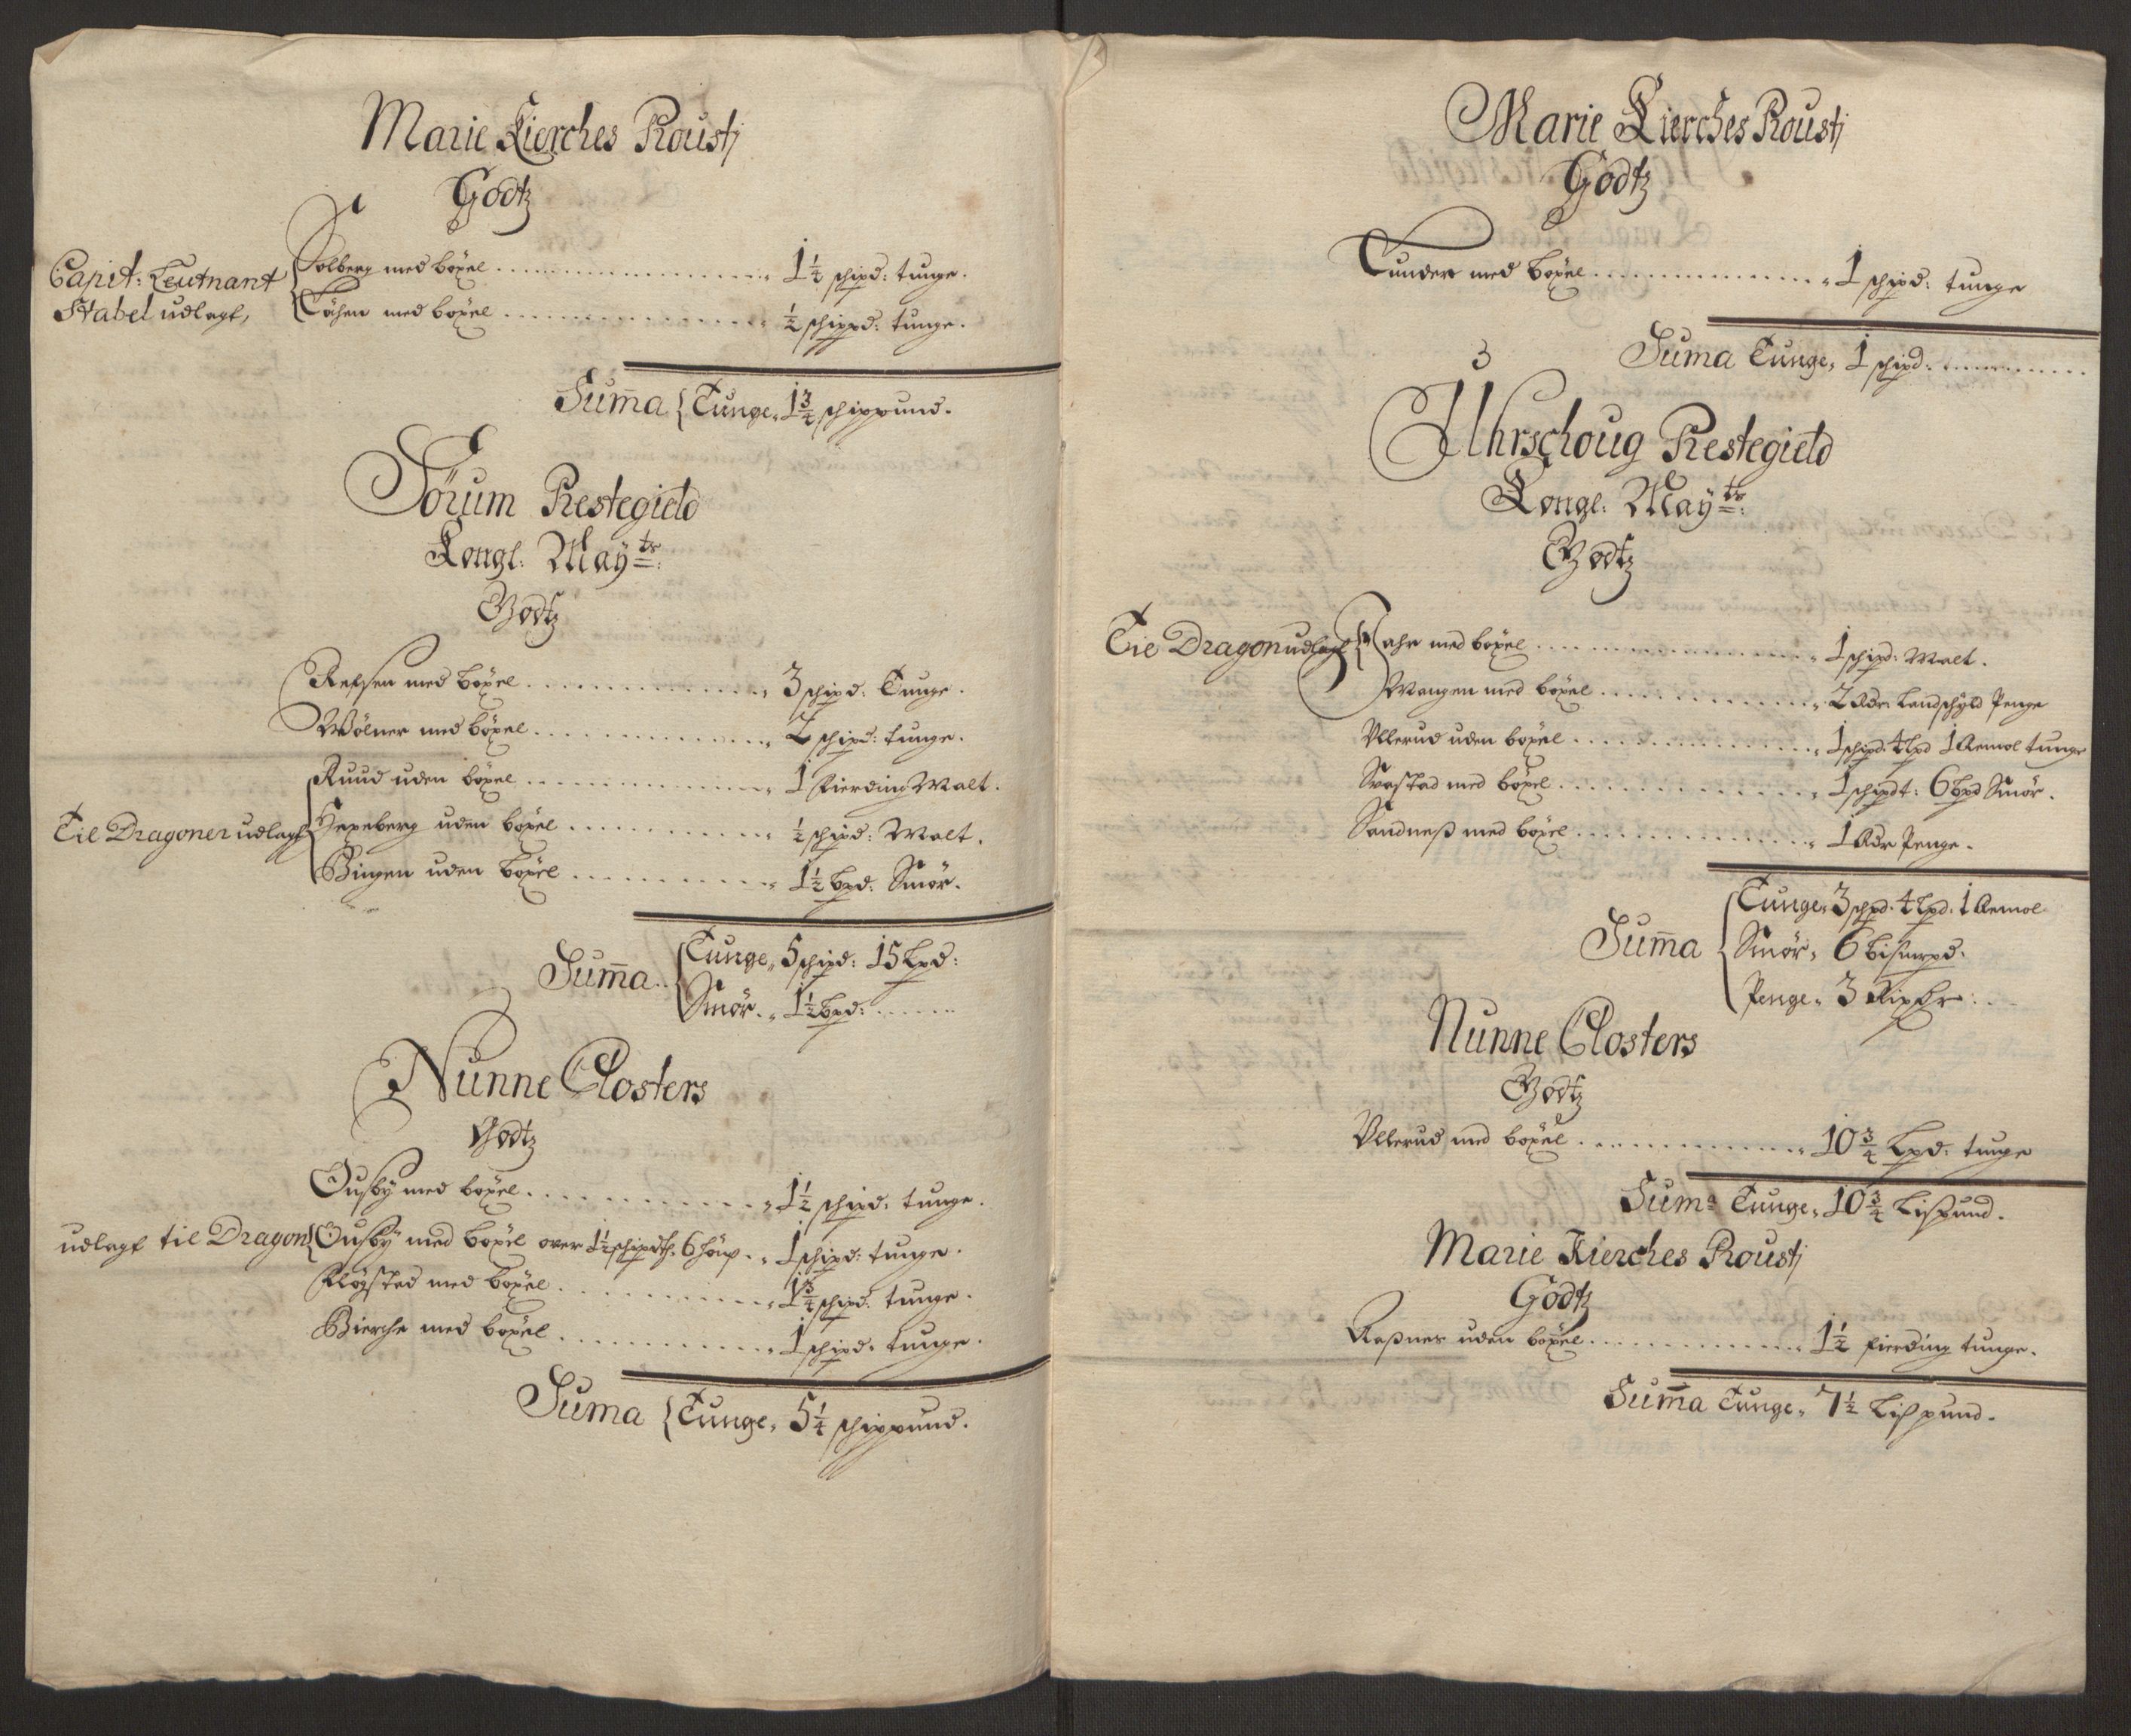 Marie Kierches Prousti
Godtz
Capit: Leutnant
Stabel udlagt,
Solberg med böxel 1 1/4 schipd: tunge.
Tåhen med böxel 1/2 schippd: tunge.
Suma Tunge, 1 3/4 schippund.
Sörum Prestegield
Kongl: Mayts:
Godtz
Refsen med böxel 3 schipd: Tunge.
Wölner med böxel 2 schipd: tunge.
Ruud uden böxel 1 Fierding Malt.
Til Dragoner udlagt
Hexeberg uden böxel 1/2 schipd: Malt.
Bingen uden böxel 1 1/2 bpd: Smör.
Suma Tunge, 5 schipd: 15 Lpd:
Smör. 1 1/2 bpd:
Nunne Closters
Godtz
Ousby med böxel 1 1/2 schipd: tunge.
udlagt til Dragon Ousby med böxel over 1 1/2 schipdth. 6 1 schipd: tunge.
Fløgstad med böxel 1 3/4 schipd: tunge.
Bierche med böxel 1 schipd. tunge.
Suma Tunge, 5 1/4 schippund.
Marie Kierches Prousti
Godtz
Tunder med böxel 1 schipd: tunge
Suma Tunge, 1 schipd:
3
Uhrschoug Prestegield
Kongl: Mayts:
Godtz
Til Dragon udlagt ahr med böxel 1 schipd: Malt.
Mangen med böxel 2 Rdr Landschyld Penge
Ullerud uden böxel 1 schipd. 4 Lpd 1 Remol tunge
Svastad med böxel 1 schipdt: 6 bpd Smör.
Sandness med böxel 1 Rdr Penge.
Suma Tunge, 3 schpd. 4 Lpd. 1 Remol
Smör, 6 bismerpd.
Penge, 3 Rixdr
Nunne Closters
Godtz
Ullerud med böxel 10 3/4 Lpd: tunge
Suma Tunge, 10 3/4 Lispund.
Marie Kierches Prousti
Godtz
Rasnes uden böxel 1 1/2 fierding tunge.
Suma Tunge, 7 1/2 Lispund.